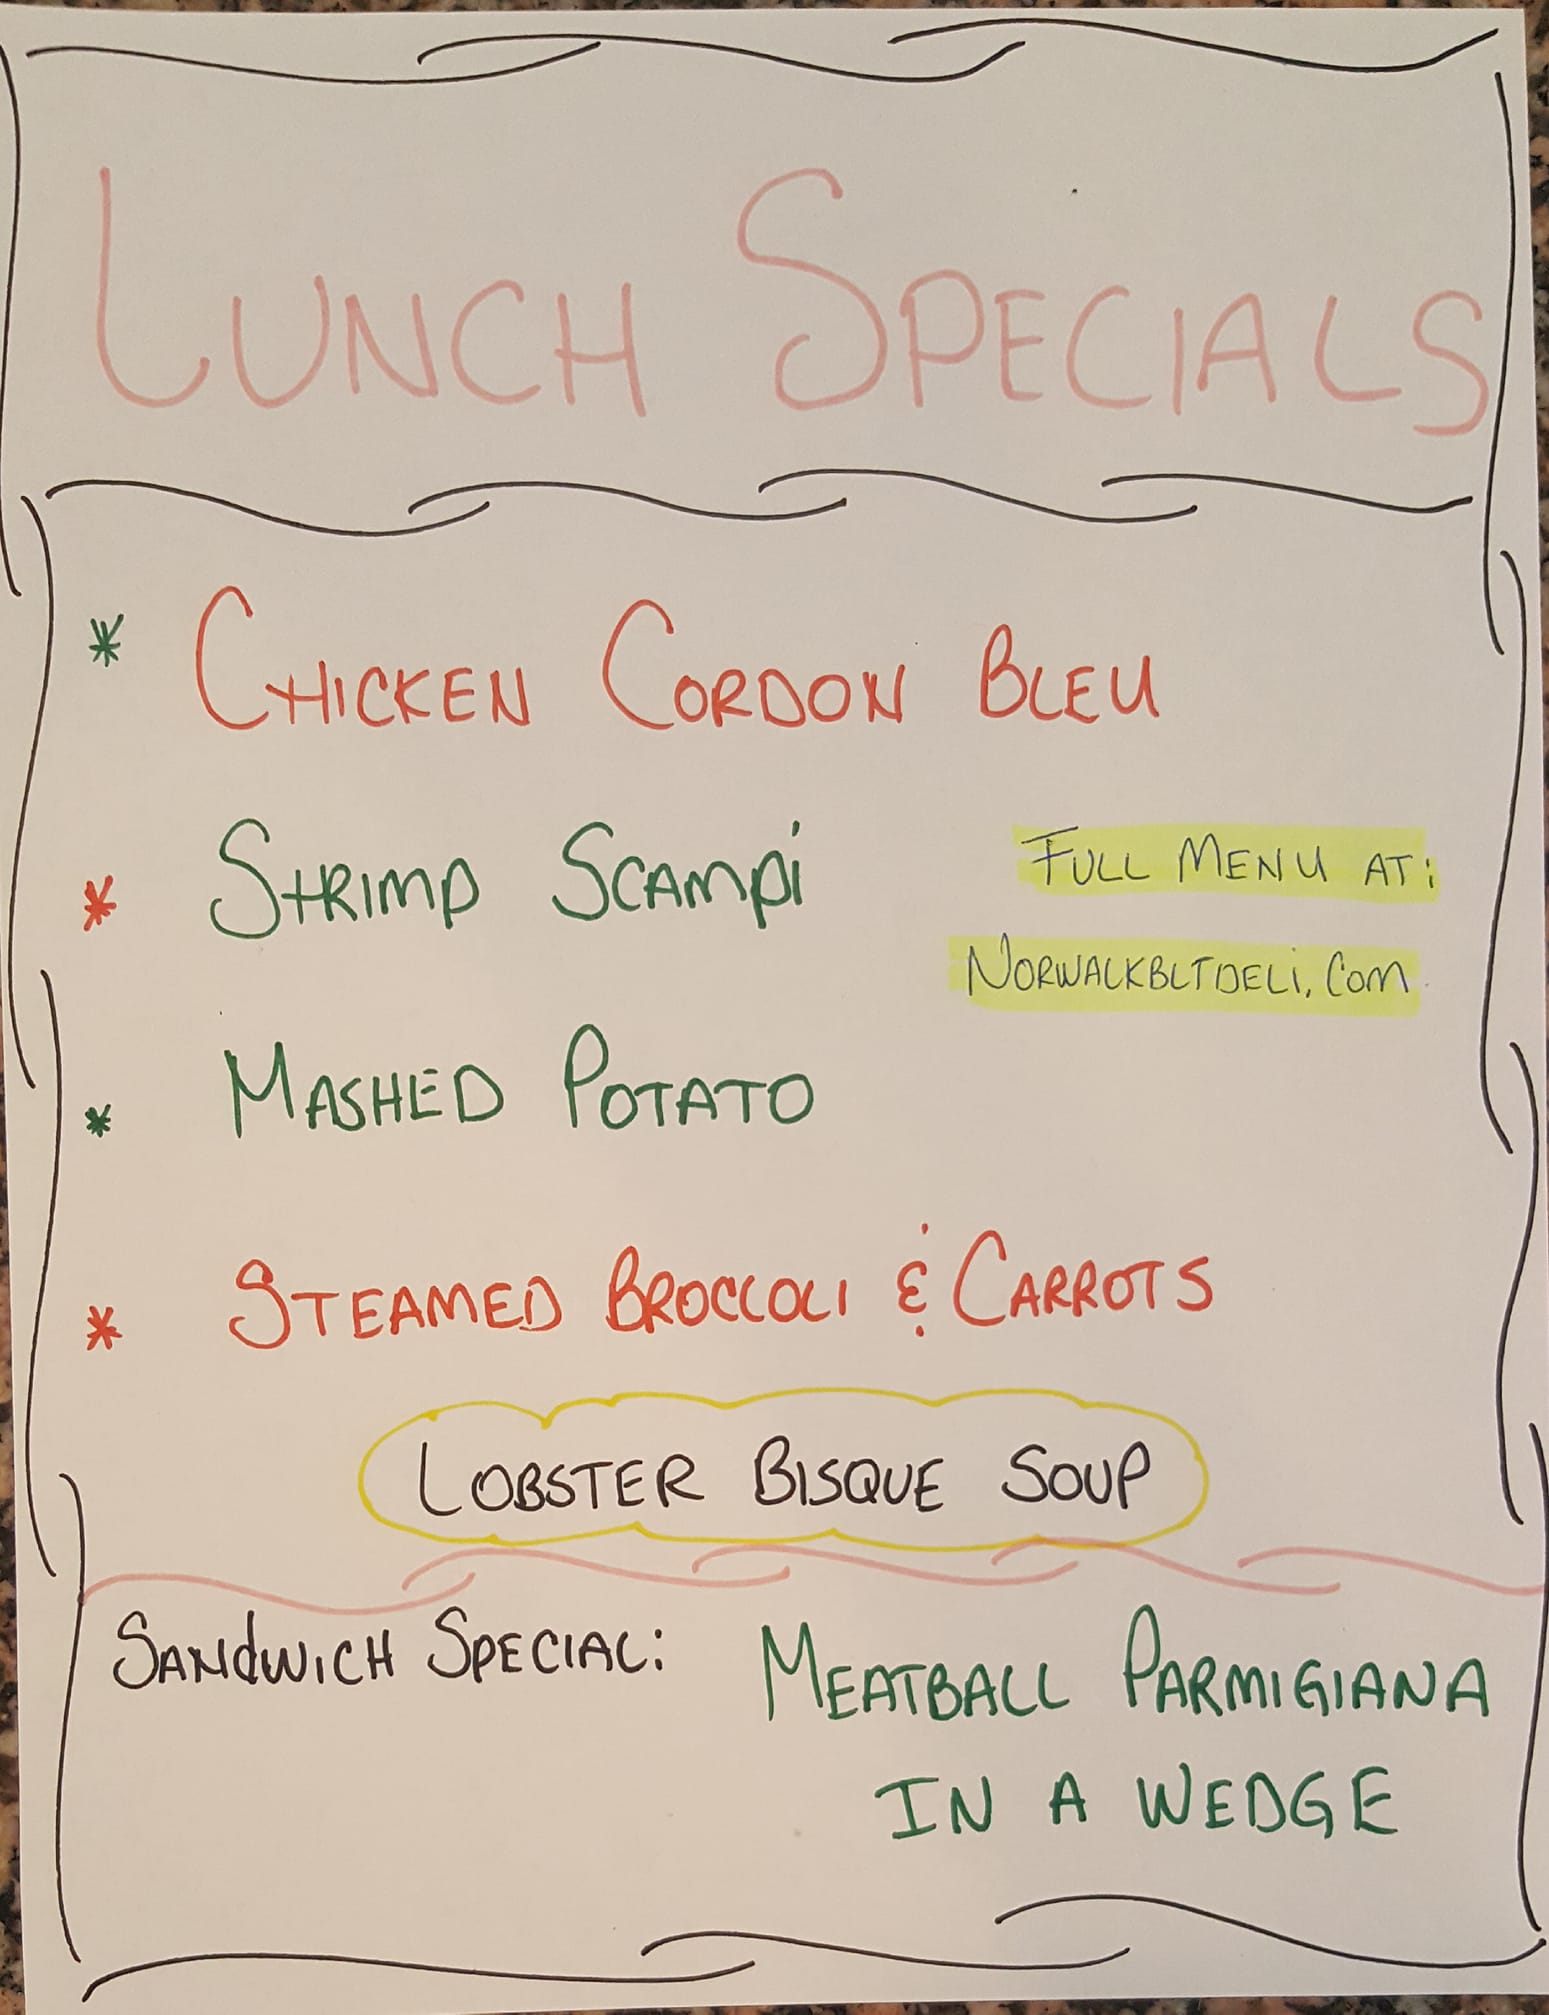 LUNCH SPECIALS
* CHICKEN CORDON BLEU
* SHRIMP SCAMPi
FULL MENU AT:
NORWALKBLTDELi.COM
* MASHED POTATO
* STEAMED BROCCOLI & CARROTS
LOBSTER BISQUE SOUP
SANdWICH SPECIAL: MEATBALL PARMIGIANA
IN A WEDGE